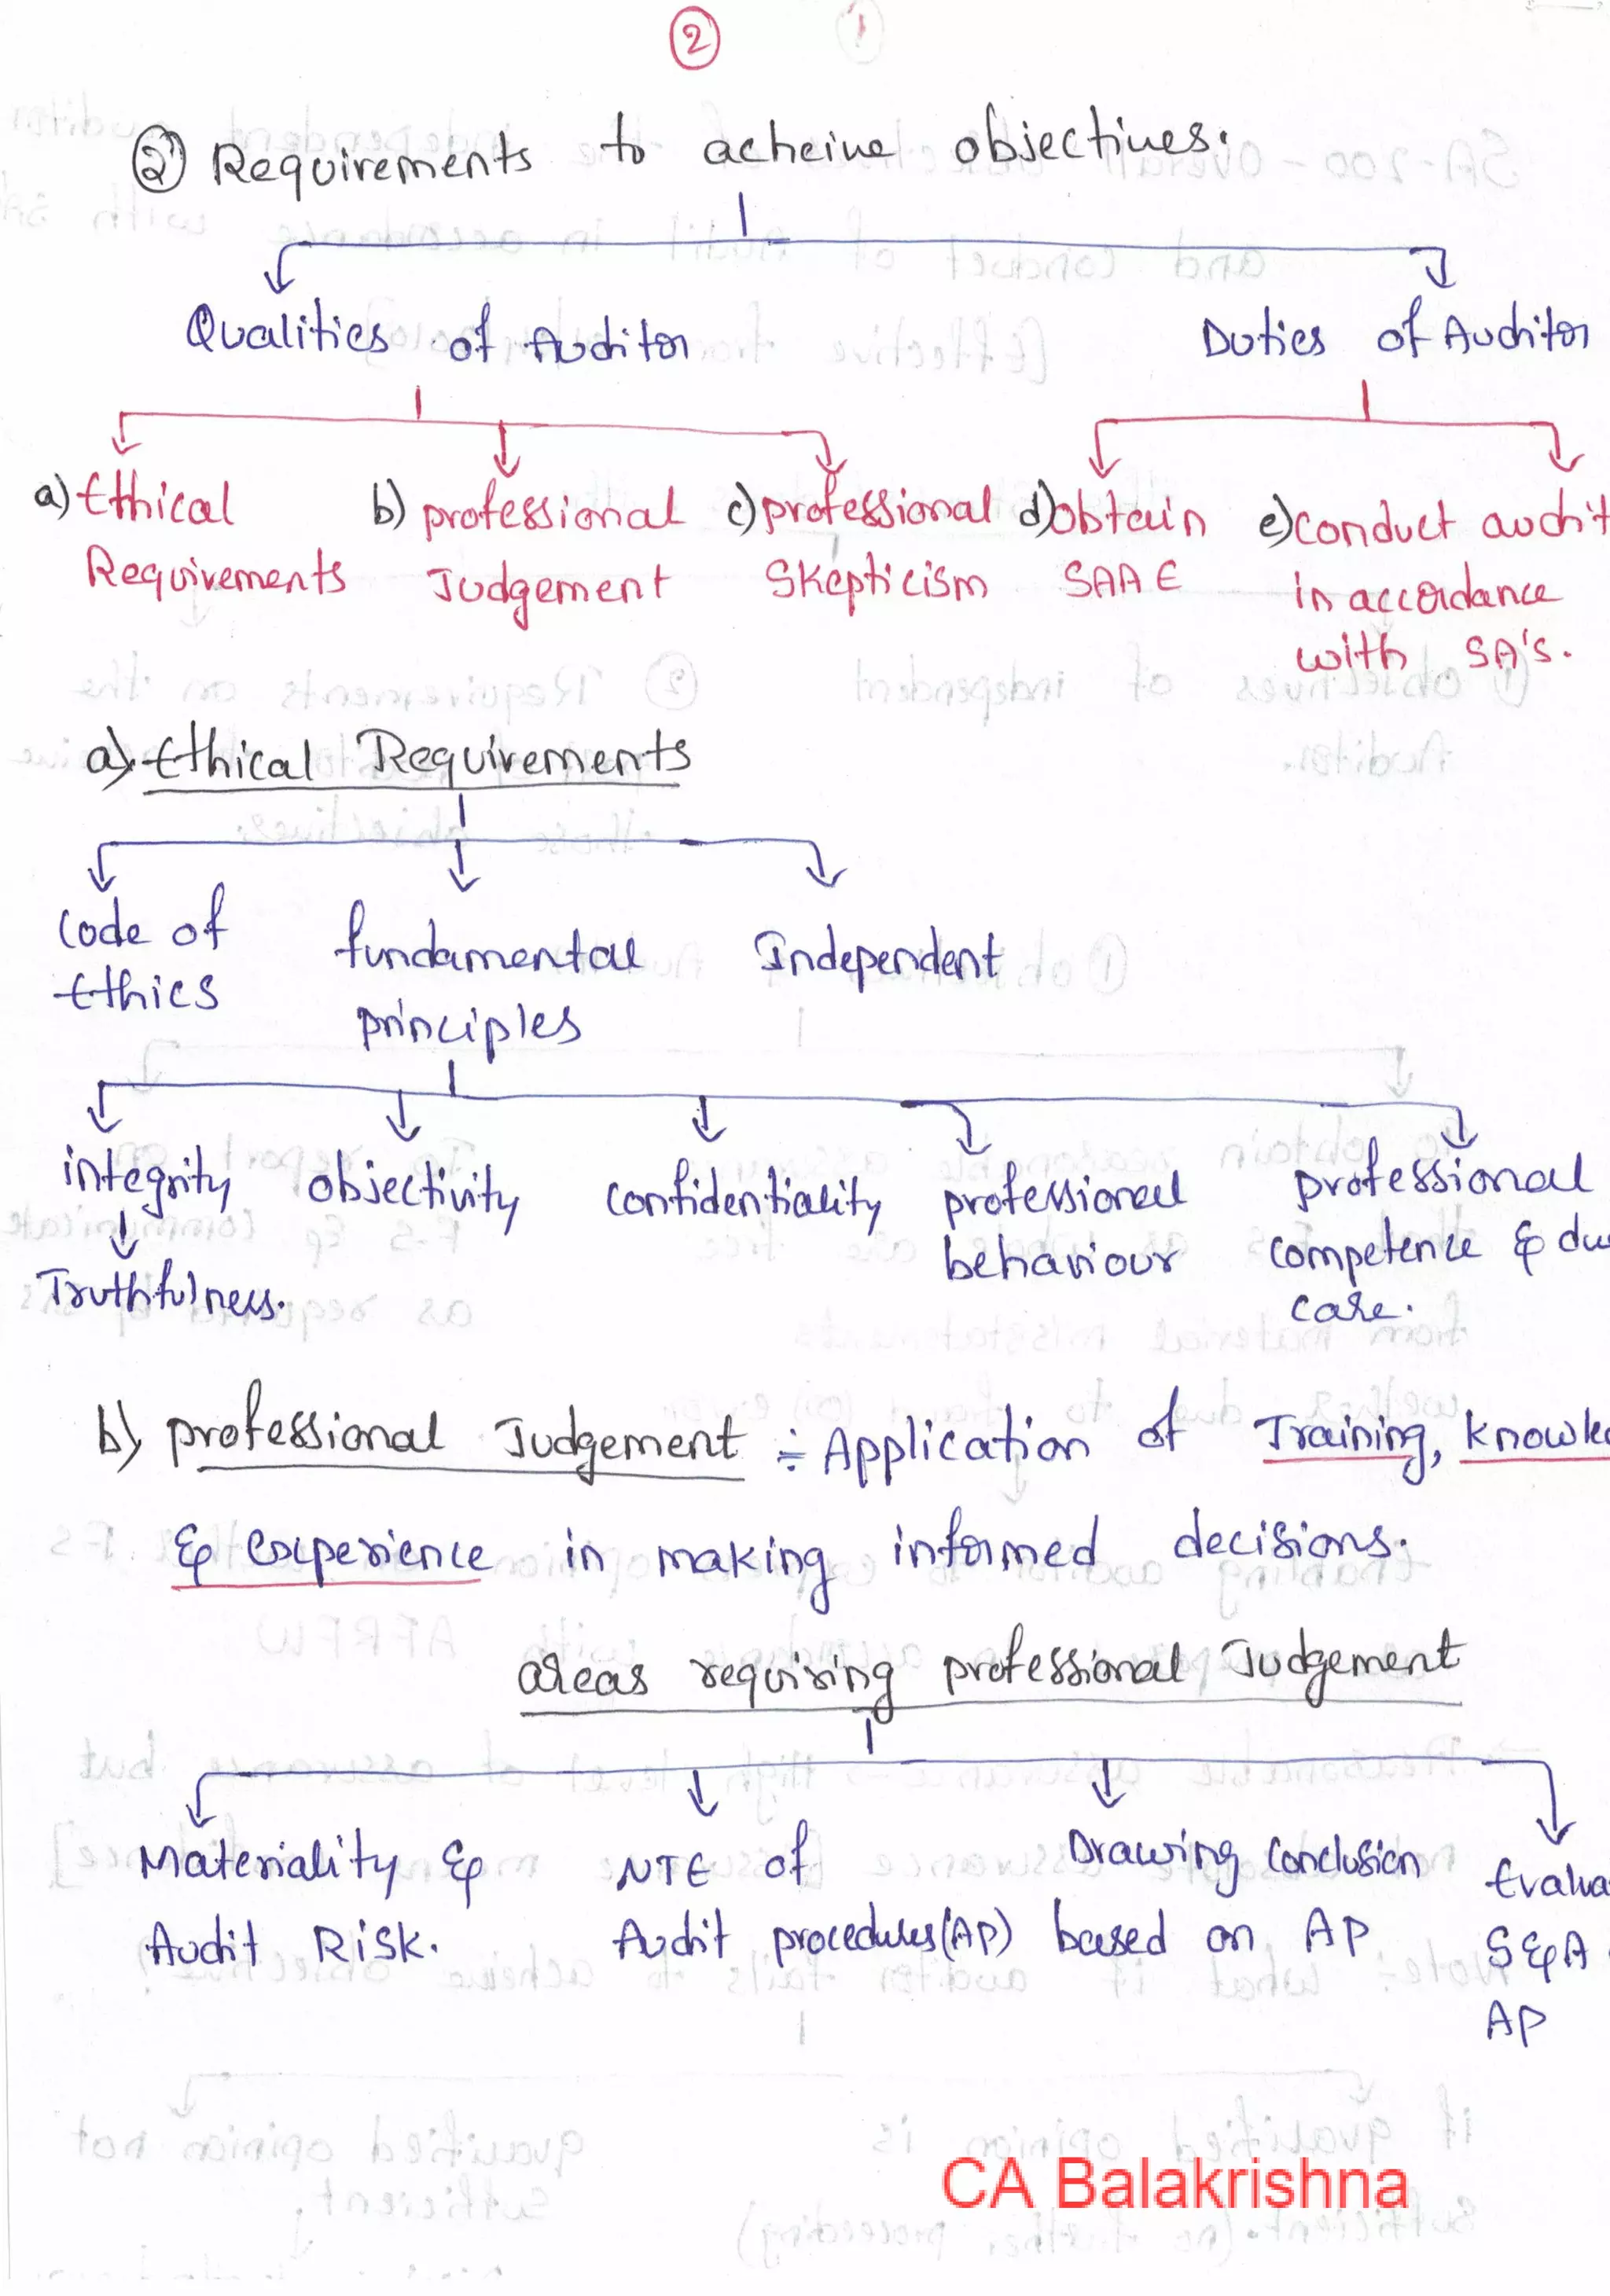 2
② Requirements to acheive objectives.
Qualities of Auditor
Duties of Auditor
a) Ethical Requirements
b) professional Judgement
c) professional Skepticism
d) obtain SAAE
e) conduct audit in accordance with SA's.
a). Ethical Requirements
Code of Ethics
fundamental principles
Independent
integrity
Truthfulness.
objectivity
confidentiality
professional behaviour
professional competence & du
care.
b) professional Judgement ÷ Application of Training, knowle
& Experience in making informed decisions.
areas requiring professional Judgement
Materiality & Audit Risk.
NTE of Audit procedures (AP)
Drawing Conclusion based on AP
Evalua
S & A
AP
CA Balakrishna